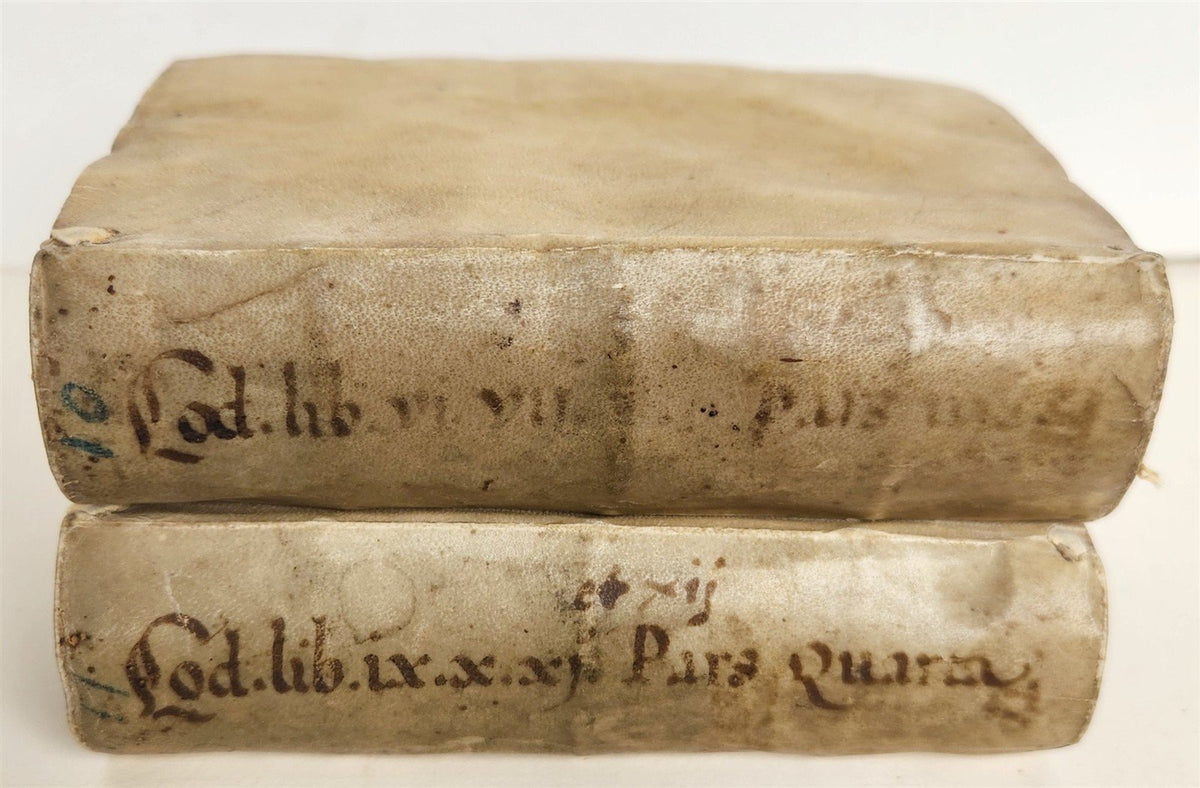 10
Cod. lib. vi. vii
Pars
et xij
11
Cod. lib. ix. x. xj. Pars Quarta